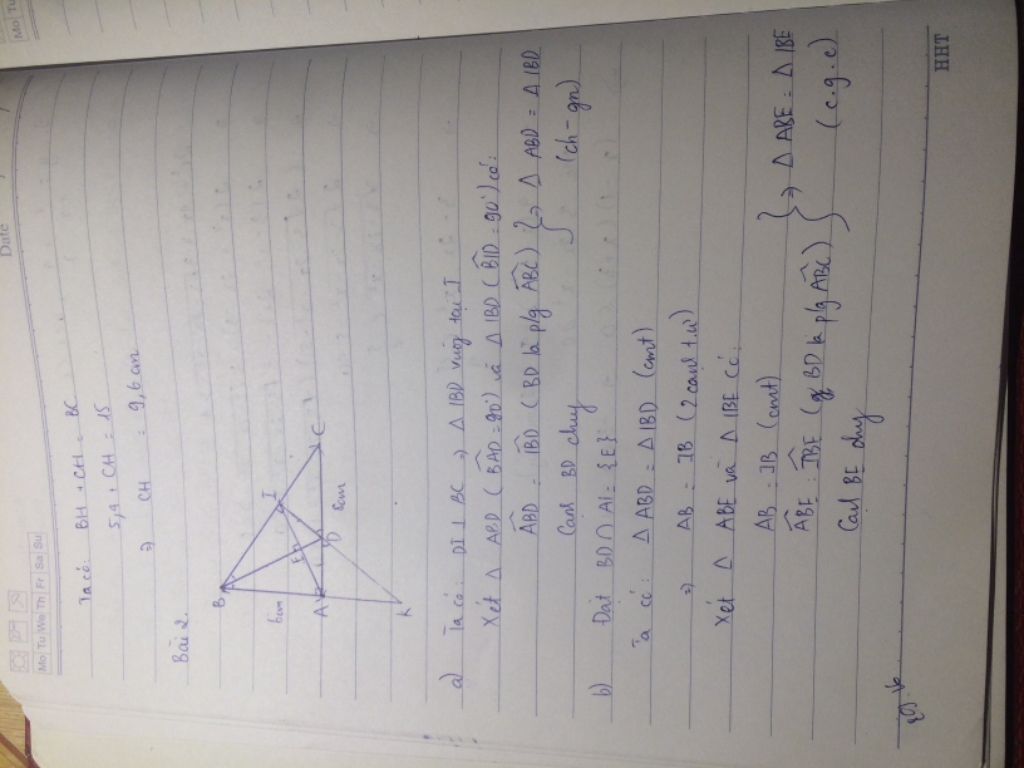 Date
Mo Tu We Th Fr Sa Su
Ta có: BH + CH = BC
5,4 + CH = 15
⇒ CH = 9,6 cm
Bài 2.
B
I
C
E
6cm
A
D
8cm
K
a) Ta có: DI ⊥ BC ⇒ Δ IBD vuông tại I
Xét Δ ABD (BAD = 90°) và Δ IBD (BID = 90°) có:
ABD = IBD (BD là p/g ABC) } ⇒ Δ ABD = Δ IBD
Cạnh BD chung (ch - gn)
b) Đặt BD ∩ AI = {E}
Ta có: Δ ABD = Δ IBD (cmt)
⇒ AB = IB (2 cạnh t.ư)
Xét Δ ABE và Δ IBE có:
AB = IB (cmt) } ⇒ Δ ABE = Δ IBE
ABE = IBE ( BD là p/g ABC) (c.g.c)
Cạnh BE chung
HHT